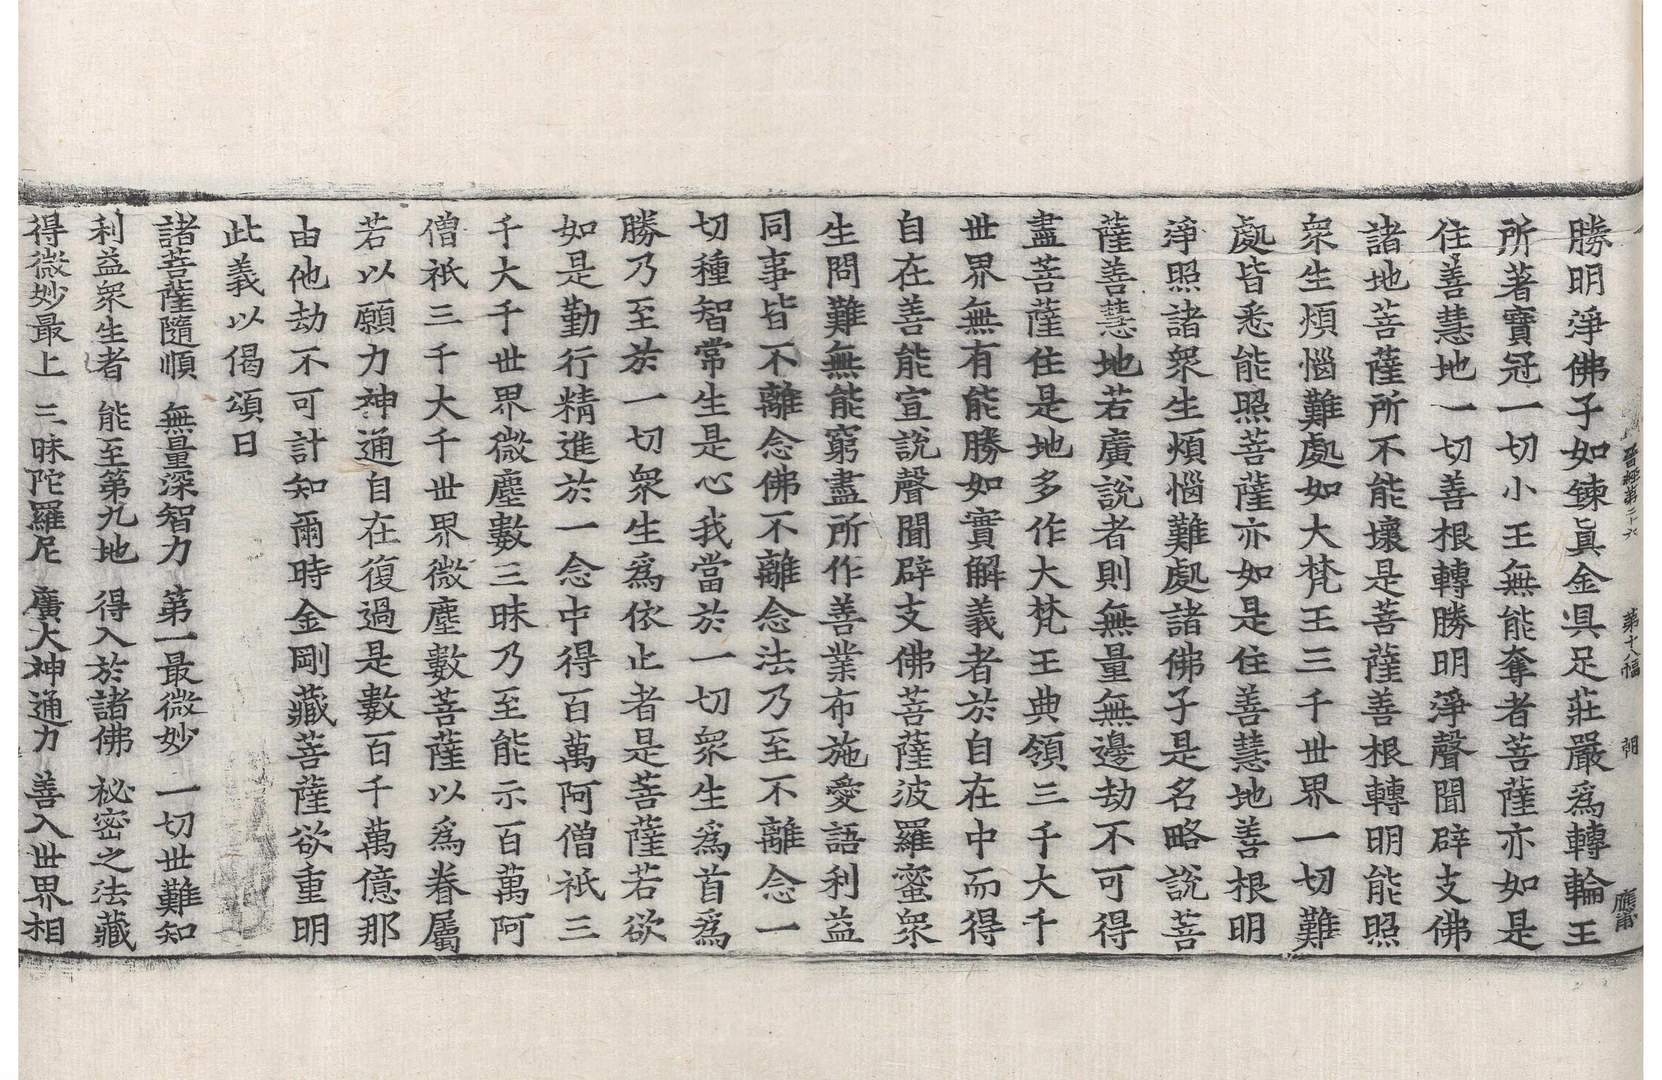 晉經第二十六　第十八幅　朝　應甫
勝明淨佛子如鍊眞金具足莊嚴爲轉輪王
所著寶冠一切小王無能奪者菩薩亦如是
住善慧地一切善根轉勝明淨聲聞辟支佛
諸地菩薩所不能壞是菩薩善根轉明能照
衆生煩惱難處如大梵王三千世界一切難
處皆悉能照菩薩亦如是住善慧地善根明
淨照諸衆生煩惱難處諸佛子是名略說菩
薩善慧地若廣說者則無量無邊劫不可得
盡菩薩住是地多作大梵王典領三千大千
世界無有能勝如實解義者於自在中而得
自在善能宣說聲聞辟支佛菩薩波羅蜜衆
生問難無能窮盡所作善業布施愛語利益
同事皆不離念佛不離念法乃至不離念一
切種智常生是心我當於一切衆生爲首爲
勝乃至於一切衆生爲依止者是菩薩若欲
如是勤行精進於一念中得百萬阿僧祇三
千大千世界微塵數三昧乃至能示百萬阿
僧祇三千大千世界微塵數菩薩以爲眷屬
若以願力神通自在復過是數百千萬億那
由他劫不可計知爾時金剛藏菩薩欲重明
此義以偈頌曰
諸菩薩隨順　無量深智力　第一最微妙　一切世難知
利益衆生者　能至第九地　得入於諸佛　祕密之法藏
得微妙最上　三昧陀羅尼　廣大神通力　善入世界相